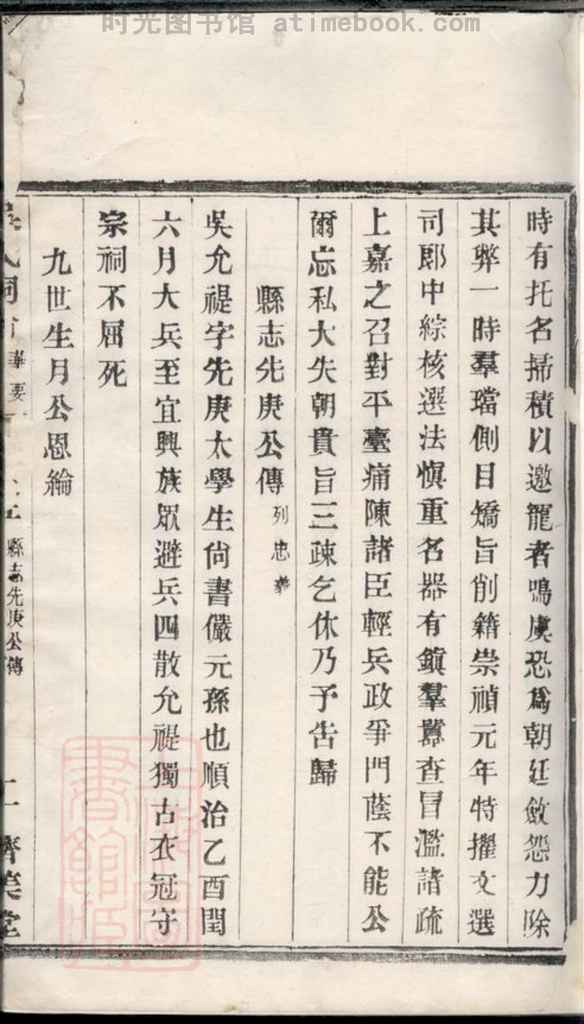 时光图书馆 atimebook.com
時有托名掃積以邀寵者鳴虞恐爲朝廷斂怨力除
其弊一時羣璫側目矯旨削籍崇禎元年特擢文選
司郎中綜核選法愼重名器有鎭羣囂查冒濫諸疏
上嘉之召對平臺痛陳諸臣輕兵政爭門蔭不能公
爾忘私大失朝貴旨三疎乞休乃予告歸
縣志先庚公傳 列忠義
吳允禔字先庚太學生尙書儼元孫也順治乙酉閏
六月大兵至宜興族眾避兵四散允禔獨古衣冠守
宗祠不屈死
九世生月公恩綸
縣志先庚公傳
二 濟美堂